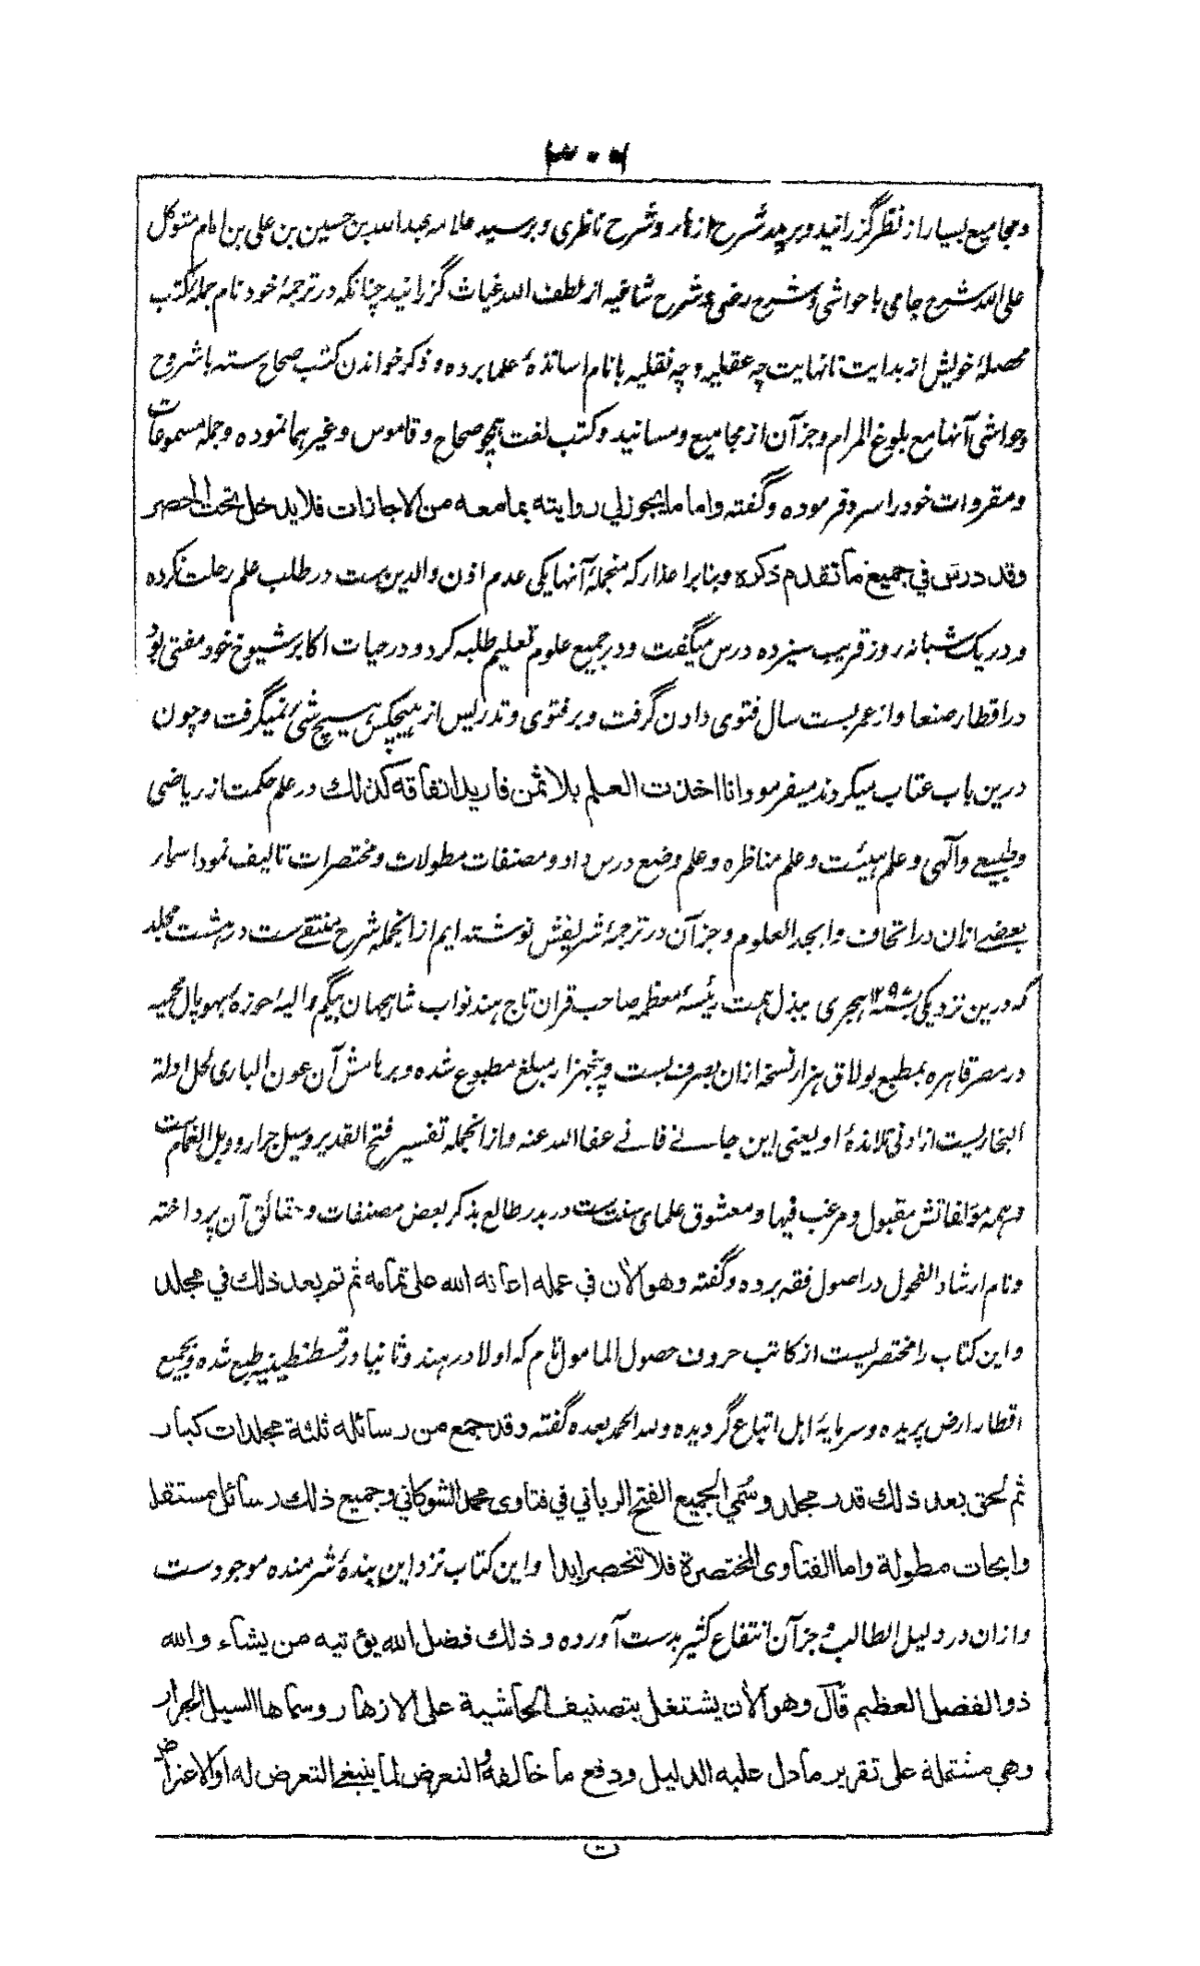 ۳۰۶
ومجامیع بسیار از نظر گزرانید و بر پدر شرح ازهار و شرح ناظری و بر سید علامه عبدالله بن حسین بن علی بن امام متوکل
علی الله شرح جامی با حواشی و شرح رضی و شرح شافیه از لطف الله غیاث گزرانید چنانکه در ترجمۀ خود نام جمله کتب
محصلۀ خویش از بدایت تا نهایت چه عقلیه و چه نقلیه با نام اساتذۀ علما برده و ذکر خواندن کتب صحاح سته با شروح
وحواشی آنها مع بلوغ المرام وجز آن از مجامیع ومسانید و کتب لغت همچو صحاح و قاموس وغیرهما نموده و جمله مسموعات
ومقروات خود را سرو فرموده وگفته واما ما یجوز لی روایته بما معه من الاجازات فلا یدخل تحت الحصر
وقد درس فی جمیع ما تقدم ذکره وبنابر اعذار که منجملۀ آنها یکی عدم اذن والدین ست در طلب علم رحلت نکرده
ودر یک شبانه روز قریب سیزده درس میگفت ودر جمیع علوم تعلیم طلبه کرد ودر حیات اکابر شیوخ خود مفتی بود
در اقطار صنعا واز عمر بست سال فتوی دادن گرفت و بر فتوی وتدریس از هیچکس هیچ شئ نمیگرفت وچون
درین باب عتاب میکردند میفرمود انا اخذت العلم بلا ثمن فارید انفاقه کذلک ودر علم حکمت از ریاضی
وطبیعی وآلهی وعلم هیئت وعلم مناظره وعلم وضع درس داد ومصنفات مطولات ومختصرات تالیف نمود اسمار
بعضی ازان در اتحاف وابجد العلوم وجز آن در ترجمۀ شریفش نوشته ایم از انجمله شرح منتقی ست در هشت مجلد
که درین نزدیکی بسنه ۱۲۹۷ هجری ببذل همت رئیسۀ معظمه صاحب قران تاج هند نواب شاهجهان بیگم والیۀ حوزۀ بهوپال محمیه
در مصر قاهره بمطبع بولاق هزار نسخه ازان بصرف بست وپنجهزار مبلغ مطبوع شده وبر هامش آن عون الباری لحل ادلة
البخاریست از ادنی تلامذۀ او یعنی این جانی فانی عفا الله عنه واز انجمله تفسیر فتح القدیر وسیل جرار ووبل الغمام ست
وهمه مؤلفاتش مقبول ومرغب فیها ومعشوق علمای سنت ست در بدر طالع بذکر بعض مصنفات وحقائق آن پرداخته
ونام ارشاد الفحول در اصول فقه برده وگفته وهو الآن فی عمله اعانه الله علی تمامه ثم تم بعد ذلک فی مجلد
واین کتاب را مختصریست از کاتب حروف حصول المامول نام که اولا در هند وثانیا در قسطنطینیه طبع شده وبجمیع
اقطار ارض پریده وسرمایۀ اهل اتباع گردیده ولله الحمد بعده گفته وقد جمع من رسائله ثلثة مجلدات کبار
ثم لحق بعد ذلک قدر مجلد وسمی الجمیع الفتح الربانی فی فتاوی محمد الشوکانی وجمیع ذلک رسائل مستقلة
وابحاث مطولة واما الفتاوی المختصرة فلا تنحصر ابدا واین کتاب نزد این بندۀ شرمنده موجود ست
وازان در دلیل الطالب وجز آن انتفاع کثیر بدست آورده وذلک فضل الله یؤتیه من یشاء والله
ذو الفضل العظیم قال وهو الآن یشتغل بتصنیف الحاشیة علی الازهار وسماها السیل الجرار
وهی مشتملة علی تقریر ما دل علیه الدلیل ودفع ما خالفه والتعرض لما ینبغی التعرض له او الاعتراض
ت